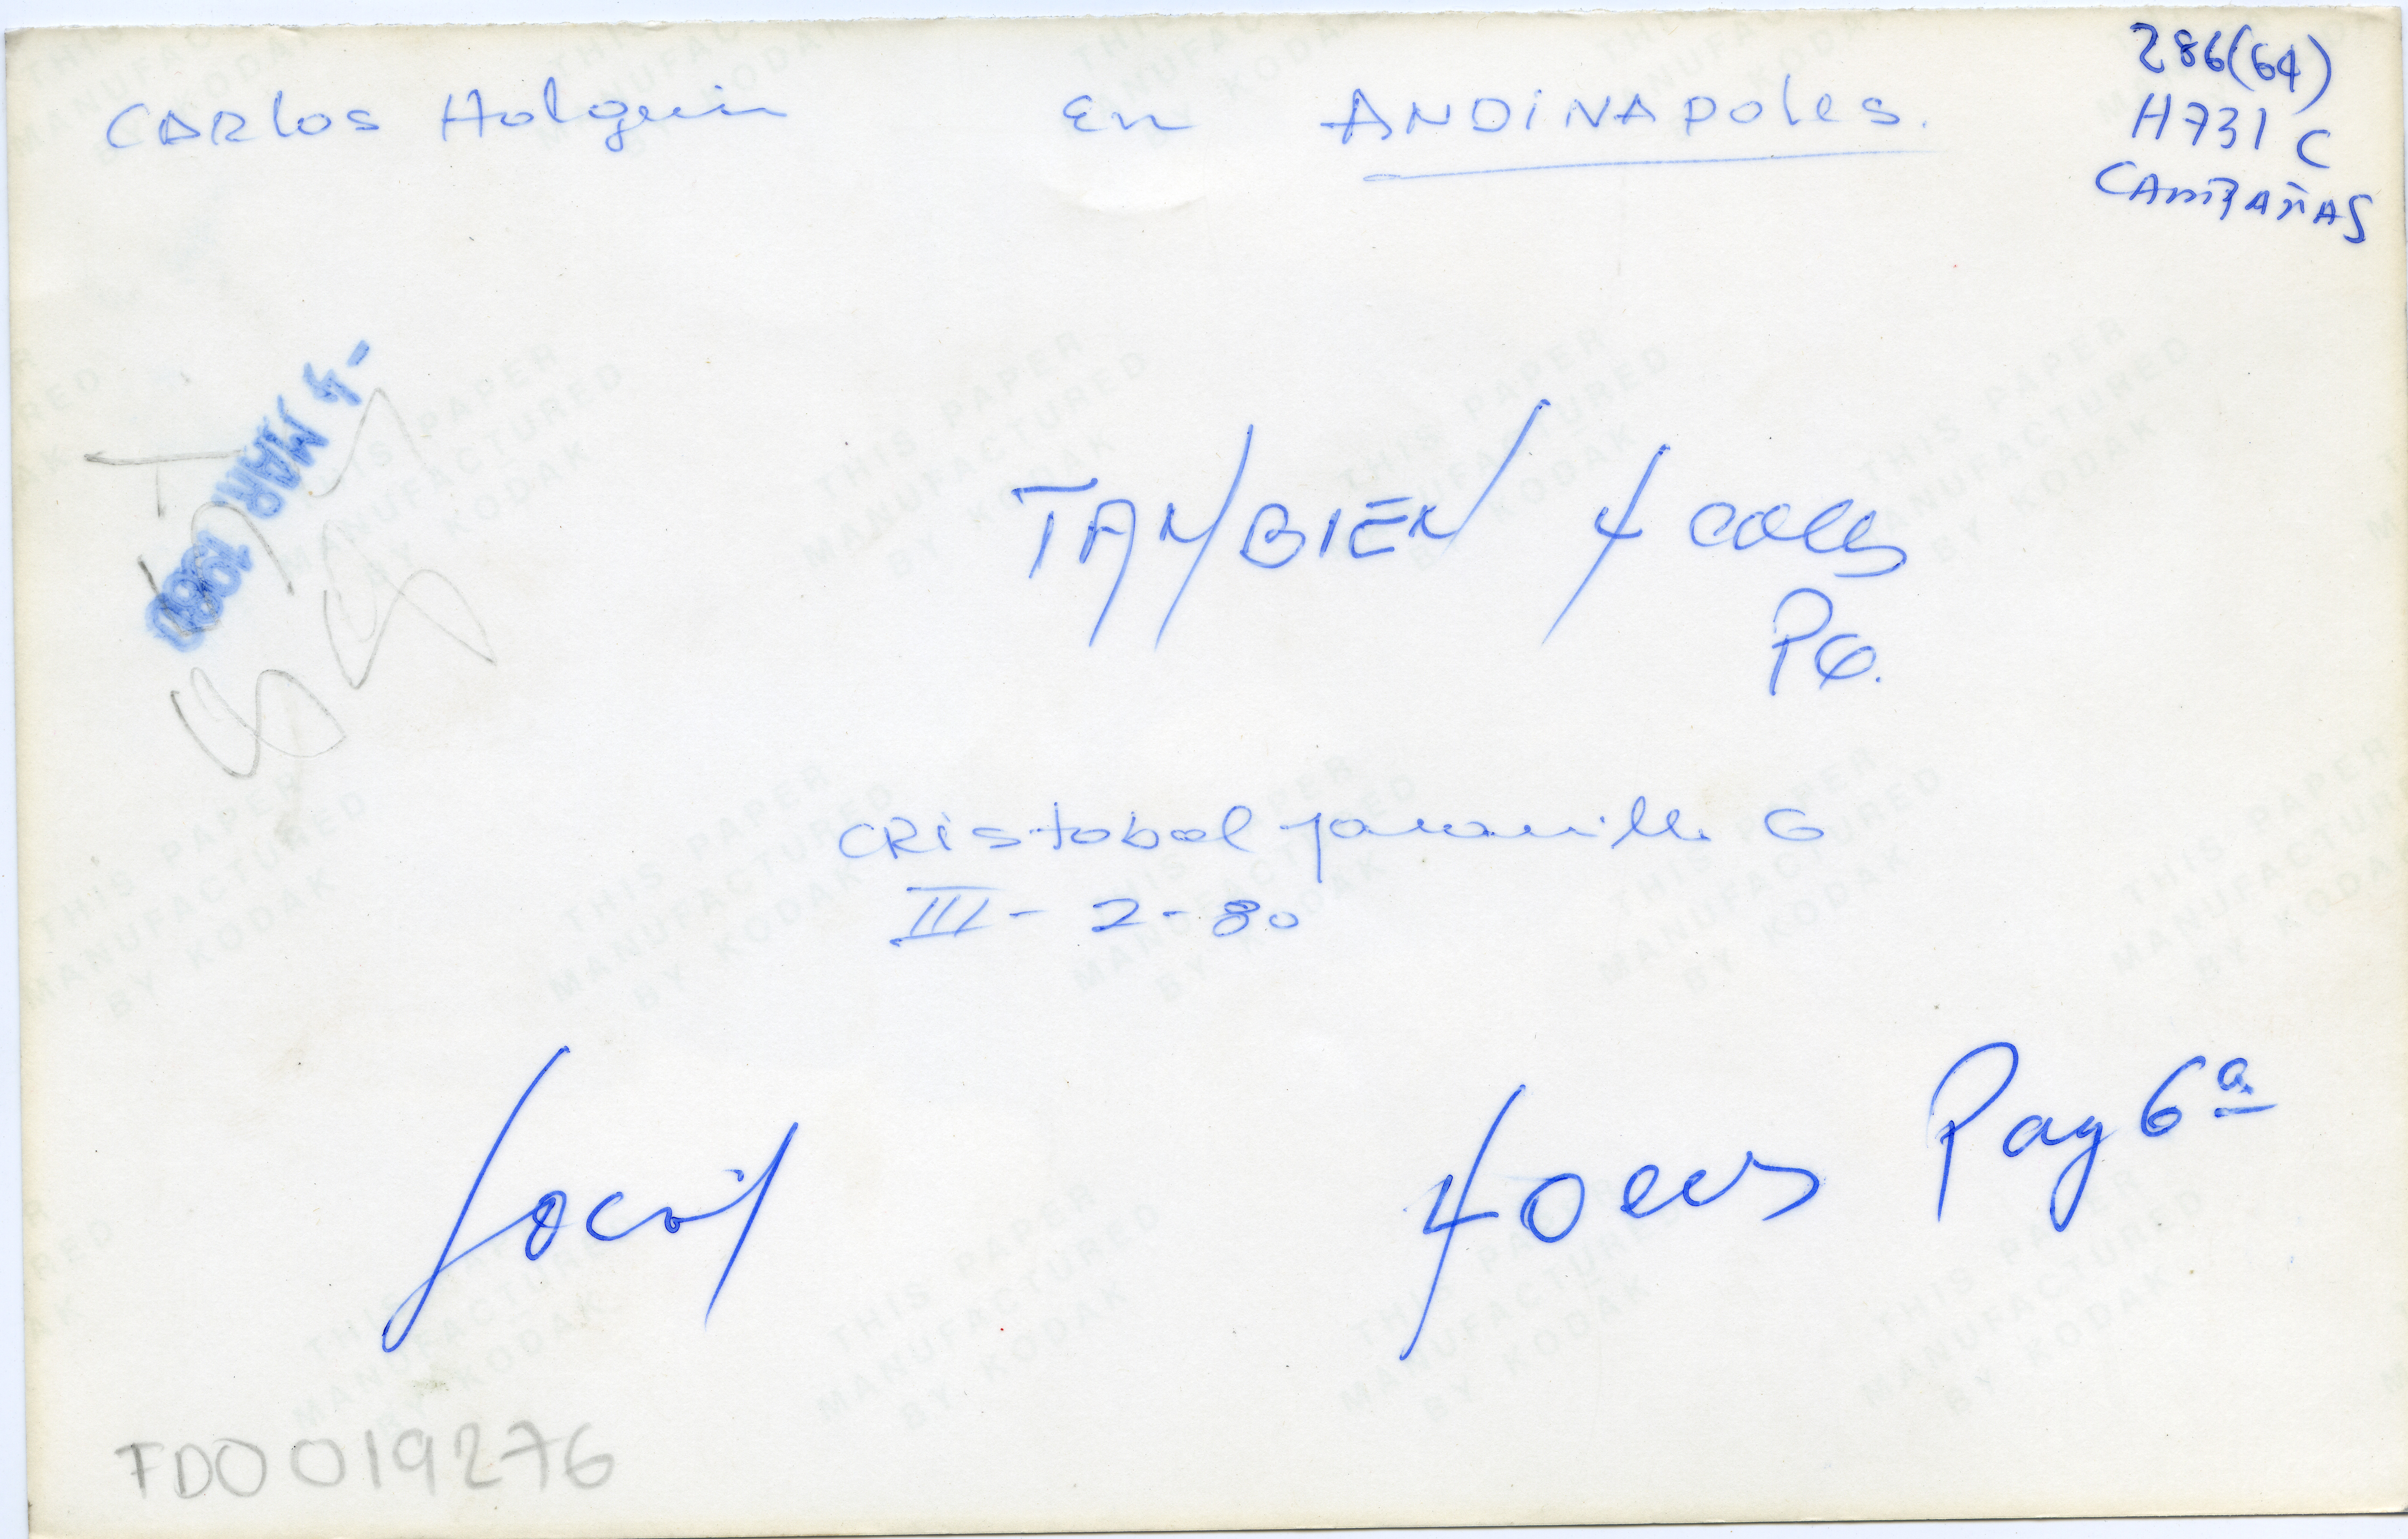 CARlos Holguin en ANDiNAPoles.
286(64)
H731 C
CAMPAÑAS
-4 MAR. 1980
TAMBIEN 4 cols
P6.
CRistobal Jaramillo G
III - 2 - 80
Local
4 cols Pag 6ª
FD0019276
THIS PAPER
MANUFACTURED
BY KODAK